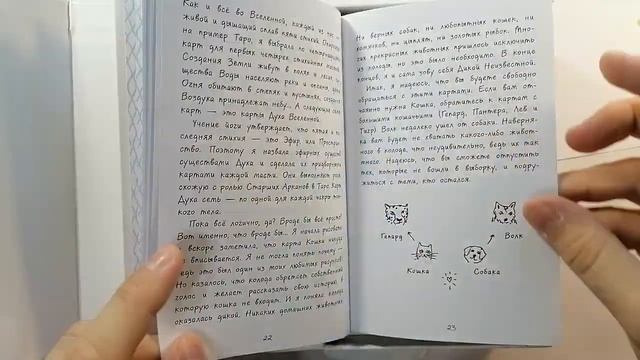 Как и всё во Вселенной, каждый из нас —
живой и дышащий сплав пяти стихий. Опираясь
на пример Таро, я выбрала по четырнадцать
карт для первых четырех стихийных мастей.
Создания Земли живут в полях и лесах,
щества Воды населяют реки и океаны,
Огня обитают в степях и пустынях, создания
Воздуха принадлежат небу... А следующие семь
карт — это карты Духа Вселенной.
Учение йоги утверждает, что пятая и по-
следняя стихия — это Эфир, или Простран-
ство. Поэтому я назвала эфирных существ
существами Духа и сделала их призрачными
картами каждой масти. Они выполняют роль,
схожую с ролью Старших Арканов в Таро. Карт
Духа семь — по одной для каждой чакры тон-
кого тела.
Пока всё логично, да? Вроде бы всё просто!
Вот именно, что вроде бы... Я начала рисовать
и вскоре заметила, что карта Кошки никуда
не вписывается. Я не могла понять почему —
ведь это был один из моих любимых рисунков!
Но казалось, что колода обретает собственный
голос и желает рассказать свою историю, в
которую кошка не входит. И я поняла: колода
оказалась дикой. Никаких домашних животных.
22
Ни верных собак, ни любопытных кошек, ни
хомячков, ни цыплят, ни золотых рыбок. Мно-
гих прекрасных животных пришлось исключить
из колоды, но это было необходимо. В конце
концов, я и сама зову себя Дикой Неизвестной.
Итак, я надеюсь, что вы будете свободно
обращаться с этими картами. Если вам от-
чаянно нужна Кошка, обратитесь к картам с
большими кошачьими (Гепард, Пантера, Лев и
Тигр). Волк недалеко ушел от собаки. Наверня-
ка вам будет не хватать какого-либо живот-
ного в колоде, что неудивительно, ведь их так
много. Надеюсь, что вы сможете отпустить
тех, которые не вошли в выборку, и подру-
житься с теми, кто остался.
Гепард
Волк
Кошка
Собака
23